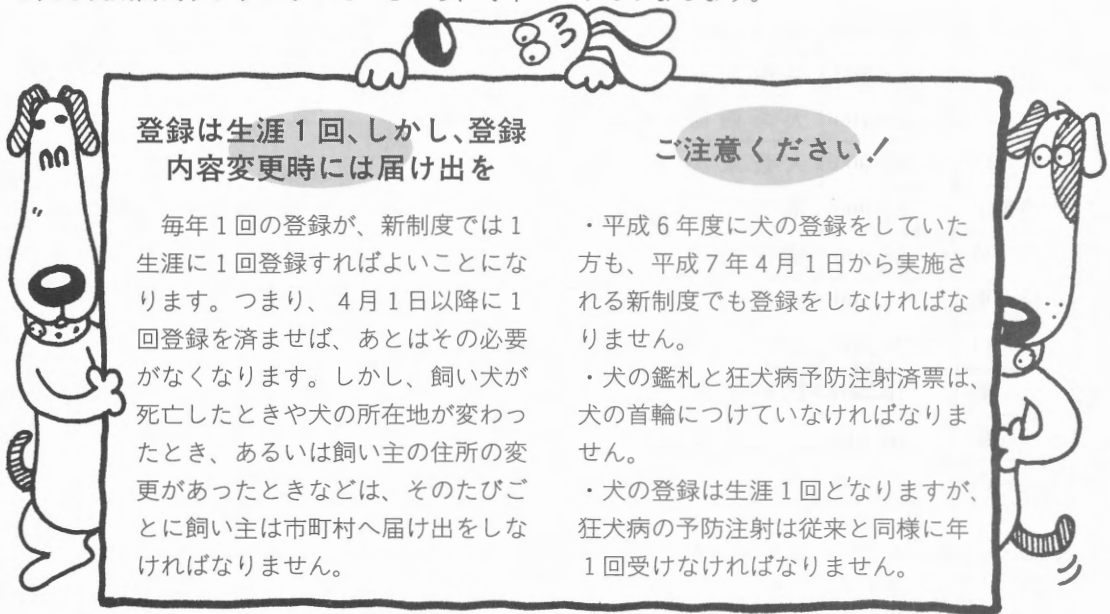 登録は生涯1回、しかし、登録
内容変更時には届け出を
毎年1回の登録が、新制度では1
生涯に1回登録すればよいことにな
ります。つまり、4月1日以降に1
回登録を済ませば、あとはその必要
がなくなります。しかし、飼い犬が
死亡したときや犬の所在地が変わっ
たとき、あるいは飼い主の住所の変
更があったときなどは、そのたびご
とに飼い主は市町村へ届け出をしな
ければなりません。
ご注意ください!
・平成6年度に犬の登録をしていた
方も、平成7年4月1日から実施さ
れる新制度でも登録をしなければな
りません。
・犬の鑑札と狂犬病予防注射済票は、
犬の首輪につけていなければなりま
せん。
・犬の登録は生涯1回となりますが、
狂犬病の予防注射は従来と同様に年
1回受けなければなりません。